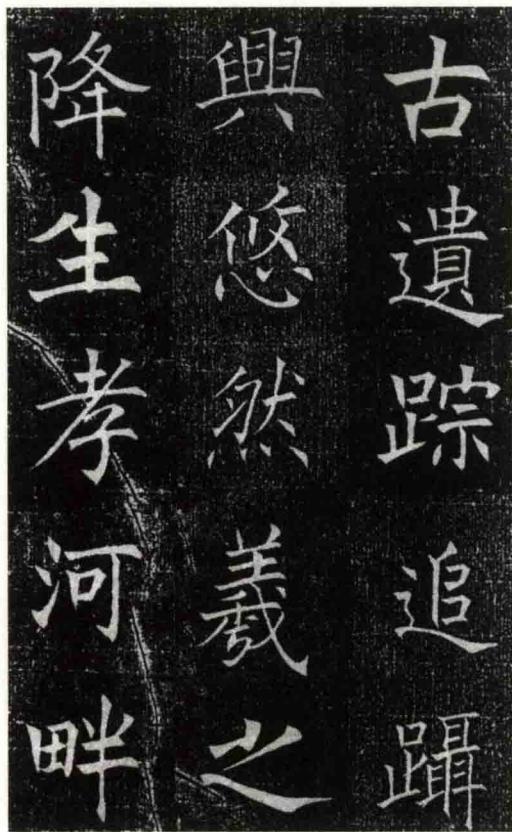 古遺踪追躡
興悠然羲之
降生孝河畔